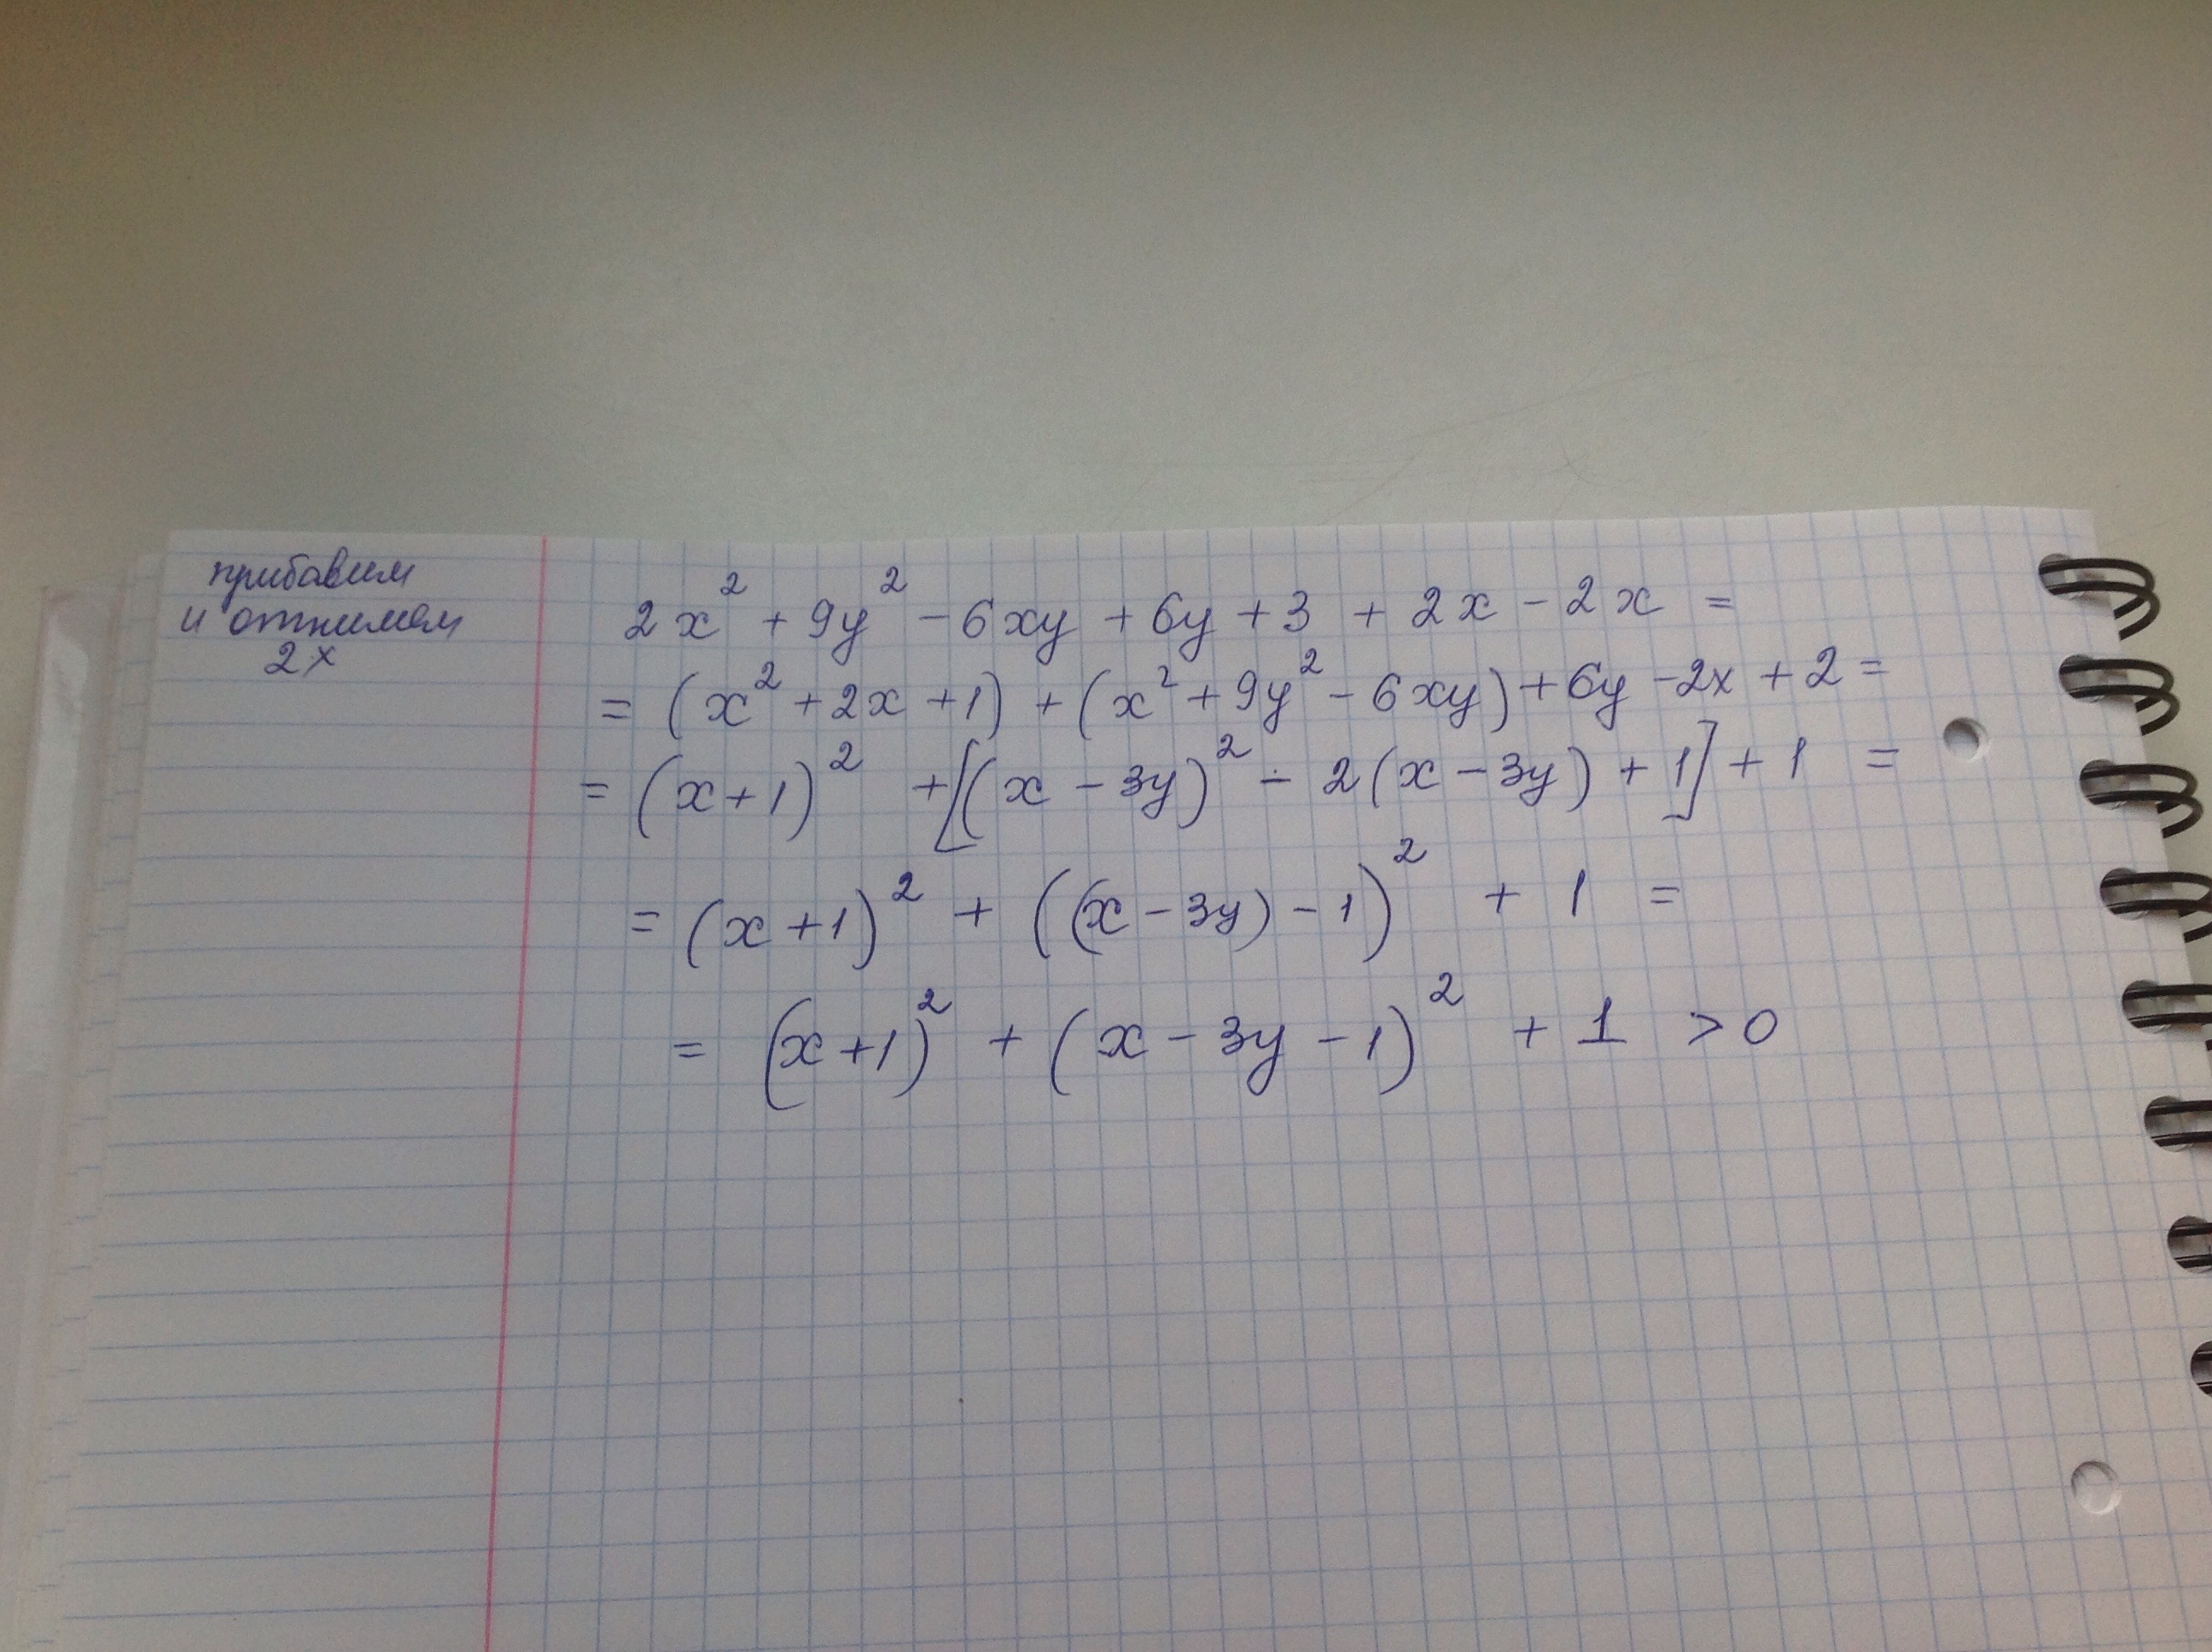 прибавим
и отнимем
2x
2x² + 9y² - 6xy + 6y + 3 + 2x - 2x =
= (x² + 2x + 1) + (x² + 9y² - 6xy) + 6y - 2x + 2 =
= (x + 1)² + [(x - 3y)² - 2(x - 3y) + 1] + 1 =
= (x + 1)² + ((x - 3y) - 1)² + 1 =
= (x + 1)² + (x - 3y - 1)² + 1 > 0